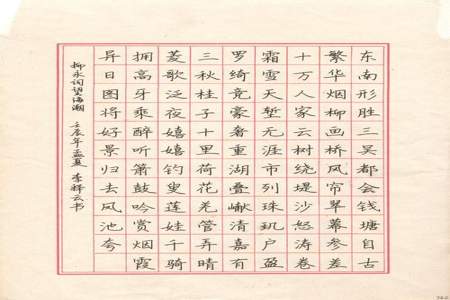 东南形胜三吴都会钱塘自古
繁华烟柳画桥风帘翠幕参差
十万人家云树绕堤沙怒涛卷
霜雪天堑无涯市列珠玑户盈
罗绮竞豪奢重湖叠巘清嘉有
三秋桂子十里荷花羌管弄晴
菱歌泛夜嬉嬉钓叟莲娃千骑
拥高牙乘醉听箫鼓吟赏烟霞
异日图将好景归去凤池夸
柳永词望海潮 壬辰年孟夏 李释云书